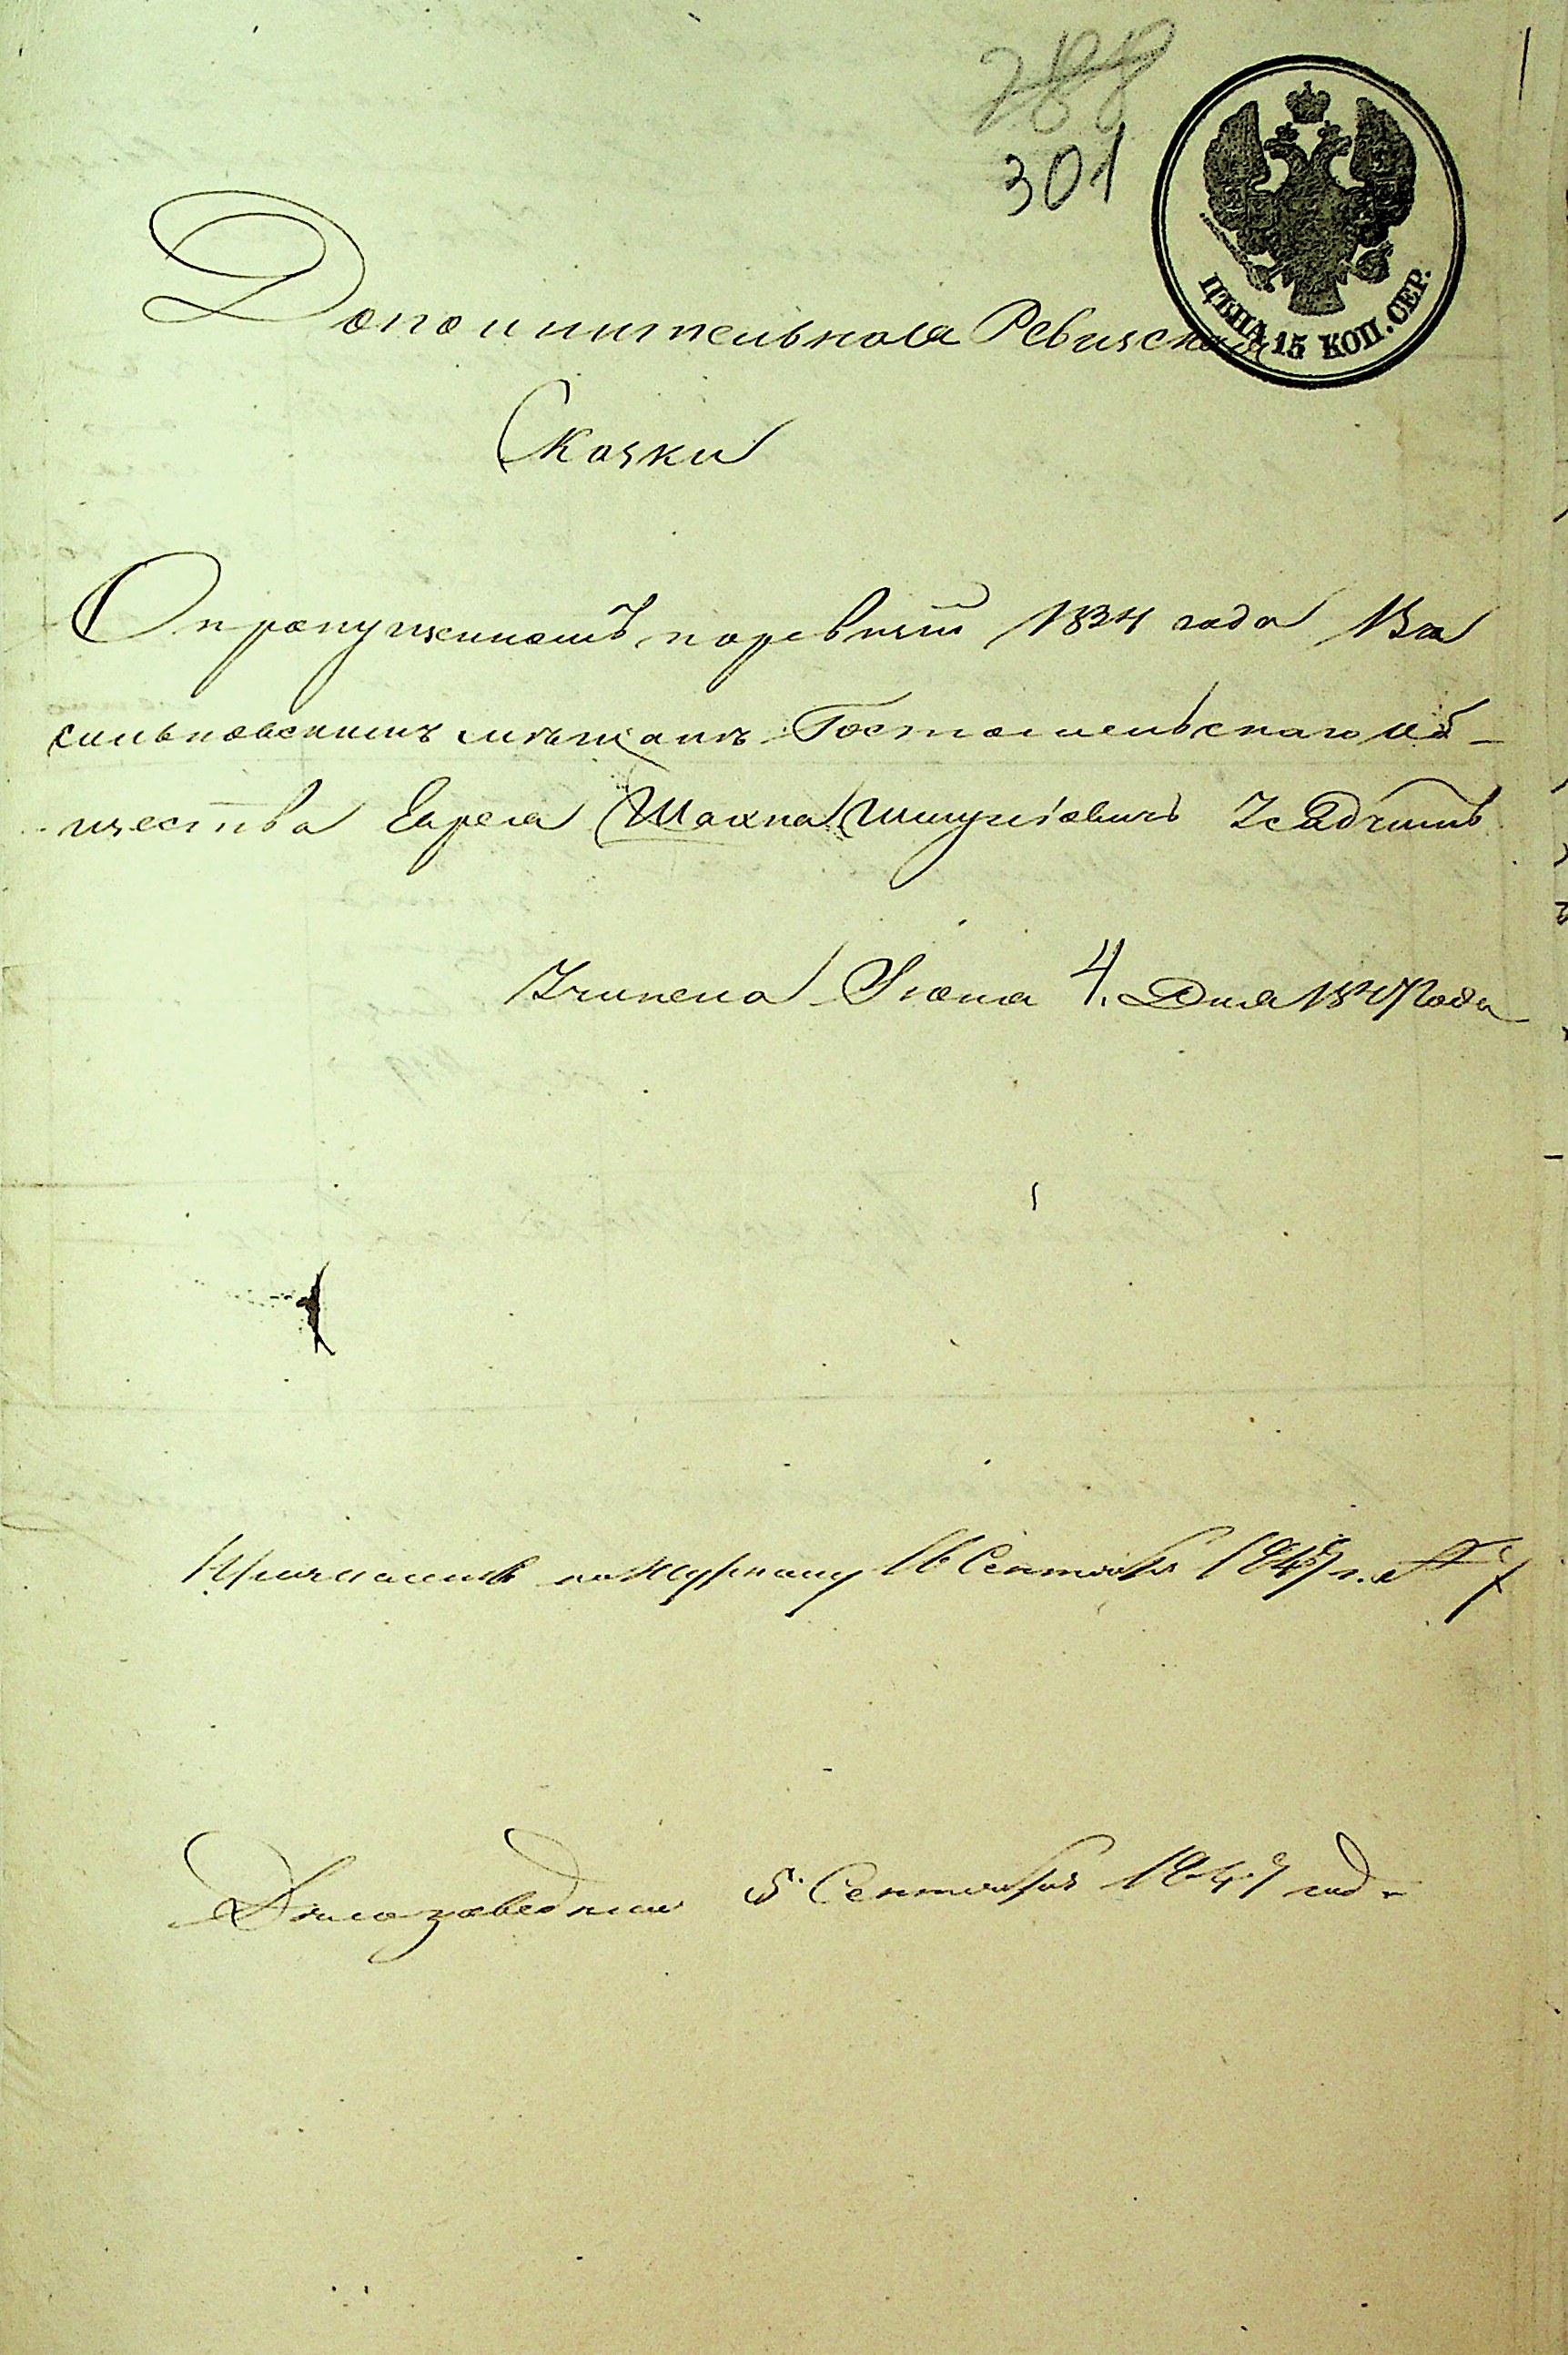 288
301
ЦѢНА 15 КОП. СЕР.
Дополнительноя Ревиская
Сказки
О пропущенномъ поревизіи 1834 года Ва
сильковскимъ мѣщанъ Гостомельскаго об-
щества Еврея Шахна
Іюня 4. Дня 1847 года
по Журналу 16 Сентября 1847 г. № 7
5 Сентября 1847 года